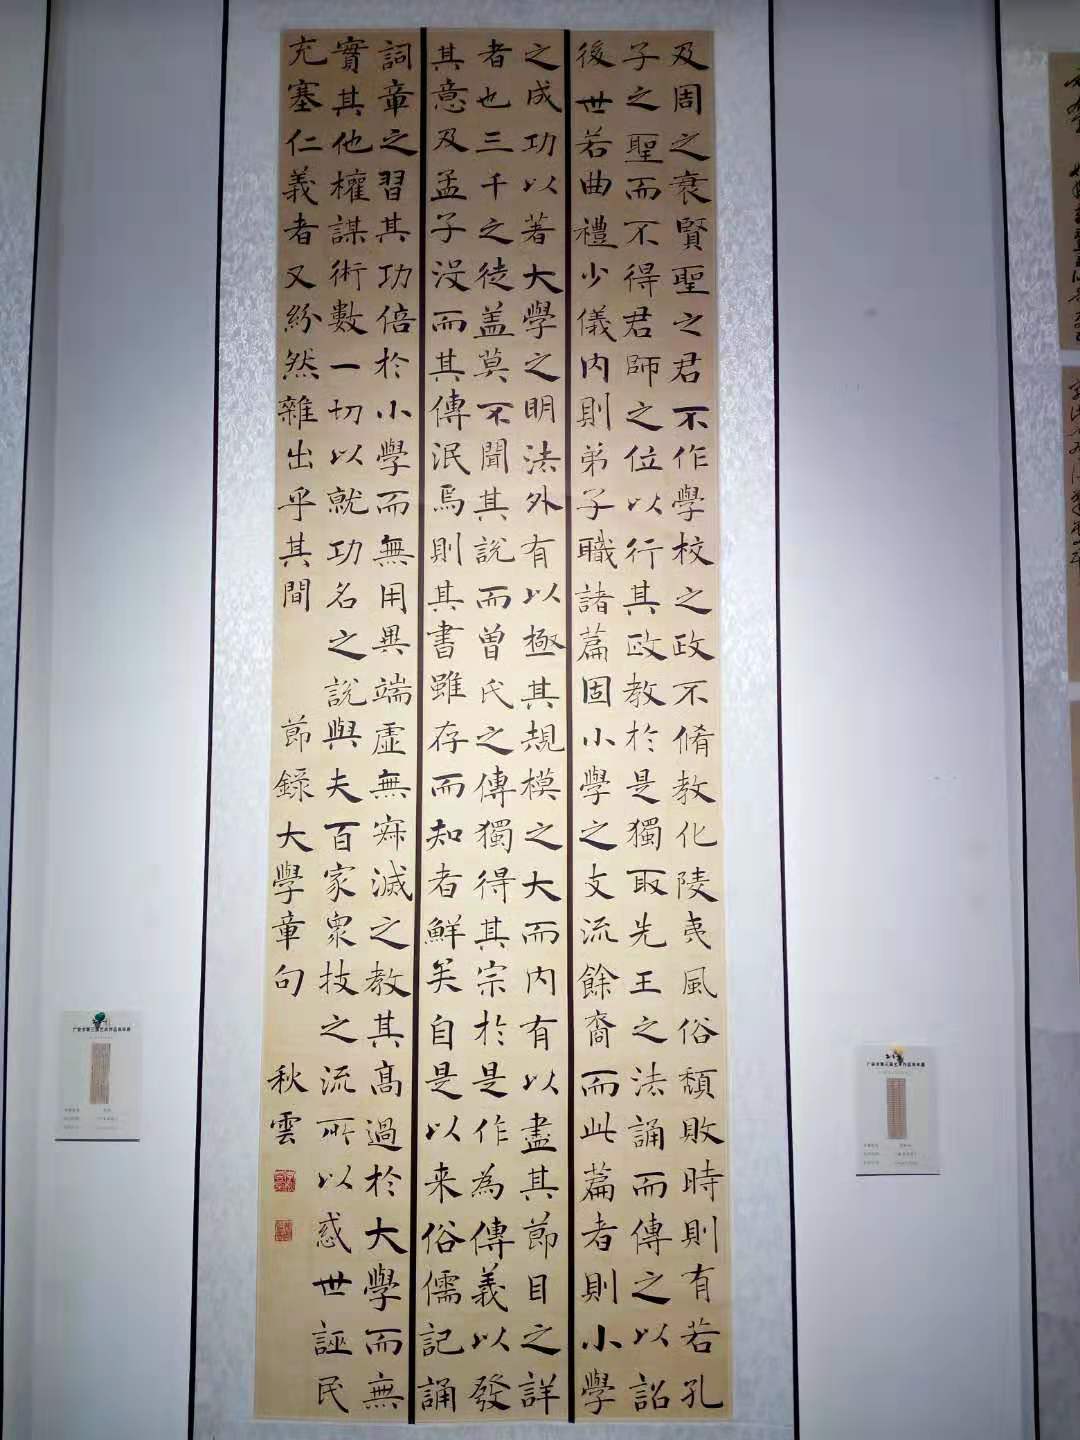 及周之衰賢聖之君不作學校之政不脩教化陵夷風俗頹敗時則有若孔
子之聖而不得君師之位以行其政教於是獨取先王之法誦而傳之以詔
後世若曲禮少儀內則弟子職諸篇固小學之支流餘裔而此篇者則小學
之成功以著大學之明法外有以極其規模之大而内有以盡其節目之詳
者也三千之徒盖莫不聞其說而曾氏之傳獨得其宗於是作為傳義以發
其意及孟子沒而其傳泯焉則其書雖存而知者鮮矣自是以来俗儒記誦
詞章之習其功倍於小學而無用異端虛無寂滅之教其高過於大學而無
實其他權謀術數一切以就功名之說與夫百家衆技之流所以惑世誣民
充塞仁義者又紛然雜出乎其間 節錄大學章句 秋雲